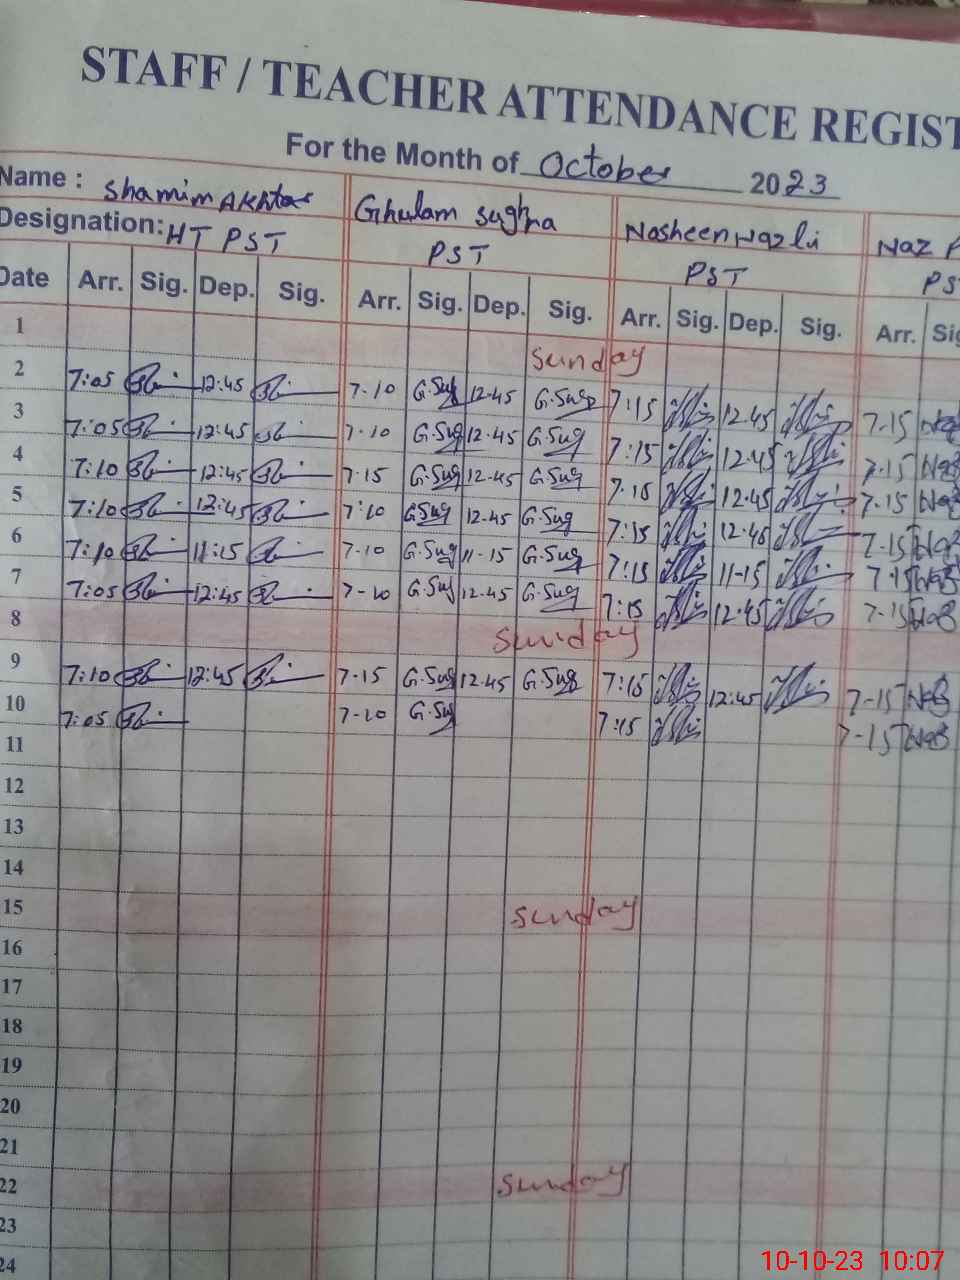 STAFF / TEACHER ATTENDANCE REGIST
For the Month of October 2023
Name : Shamim Akhtar Ghulam Sughra Nasheen Nazli Naz
Designation: HT PST PST PST PS
Date Arr. Sig. Dep. Sig. Arr. Sig. Dep. Sig. Arr. Sig. Dep. Sig. Arr. Sig
1 Sunday
2 7:05 12:45 7-10 G.Sug 12.45 G.Sug 7:15 12.45 7-15
3 7:05 12:45 7-10 G.Sug 12.45 G.Sug 7:15 12.45 7-15
4 7:10 12:45 7-15 G.Sug 12.45 G.Sug 7.15 12.45 7-15
5 7:10 12:45 7:10 G.Sug 12.45 G.Sug 7:15 12.45 7-15
6 7:10 11:15 7-10 G.Sug 11-15 G.Sug 7:15 11-15 7-15
7 7:05 12:45 7-10 G.Sug 12.45 G.Sug 7:15 12.45 7-15
8 Sunday
9 7:10 12:45 7-15 G.Sug 12.45 G.Sug 7:15 12:45 7-15
10 7:05 7-10 G.Sug 7:15 7-15
11
12
13
14
15 Sunday
16
17
18
19
20
21
22 Sunday
23
24
10-10-23 10:07